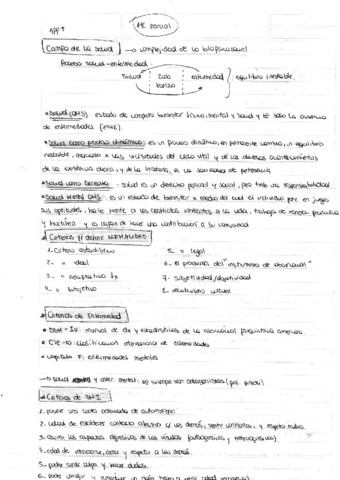 APP I
1er parcial
Campo de la salud → complejidad de lo biopsicosocial
Proceso salud-enfermedad
salud zona enfermedad equilibrio inestable.
borrosa
• Salud (OMS): estado de completo bienestar físico, mental y social y no sólo la ausencia
de enfermedades (1946).
• Salud como proceso dinámico: es un proceso dinámico, en permanente cambio, un equilibrio
inestable, marcado x las vicisitudes del ciclo vital y de los diversos acontecimientos
de la existencia diaria, y de la historia, a la sociedad de pertenencia
• Salud como Derecho: salud es un derecho personal y social, pero tmb una responsabilidad
• Salud Mental OMS: es un estado de bienestar x medio del cual el individuo pone en juego
sus aptitudes, hace frente a las vicisitudes inherentes a la vida, trabaja de manera productiva
y fructífera y es capaz de hacer una contribución a su comunidad
• Criterios p/ definir NORMALIDAD
1. Criterio estadístico
5. " legal
2. " ideal
6. el problema del "instrumento de observación"
3. " adaptativo
7. subjetividad/objetividad
4. " subjetivo
8. relativismo cultural
• Criterios de Enfermedad
• DSM-IV: manual de dx y estadísticas de la asociación psiquiátrica americana.
• CIE-10: clasificación internacional de enfermedades
• capítulo F: enfermedades mentales
→ salud y enfer. mental: no siempre son antagónicas
• Criterios de
1. poseer una cuota adecuada de autoestima
2. capacidad de establecer contacto afectivo c/ los demás, sentir y respeto mutuo
3. asumir los aspectos agresivos de los vínculos
4. capacidad de amar y respetar a los demás
5. poder sentir culpa y hacer dudas.